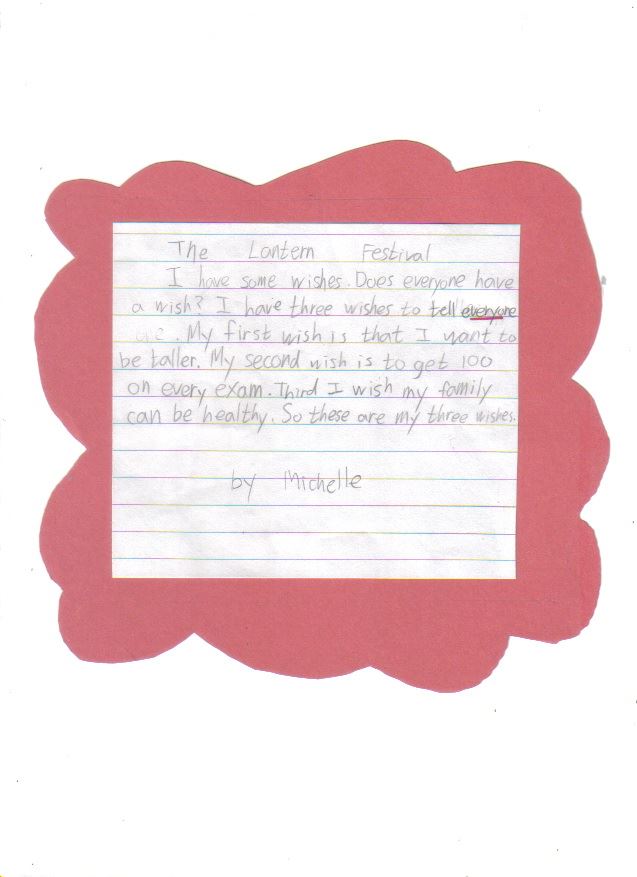 The Lantern Festival
I have some wishes. Does everyone have
a wish? I have three wishes to tell everyone
. My first wish is that I want to
be taller. My second wish is to get 100
on every exam. Third I wish my family
can be healthy. So these are my three wishes.
by Michelle